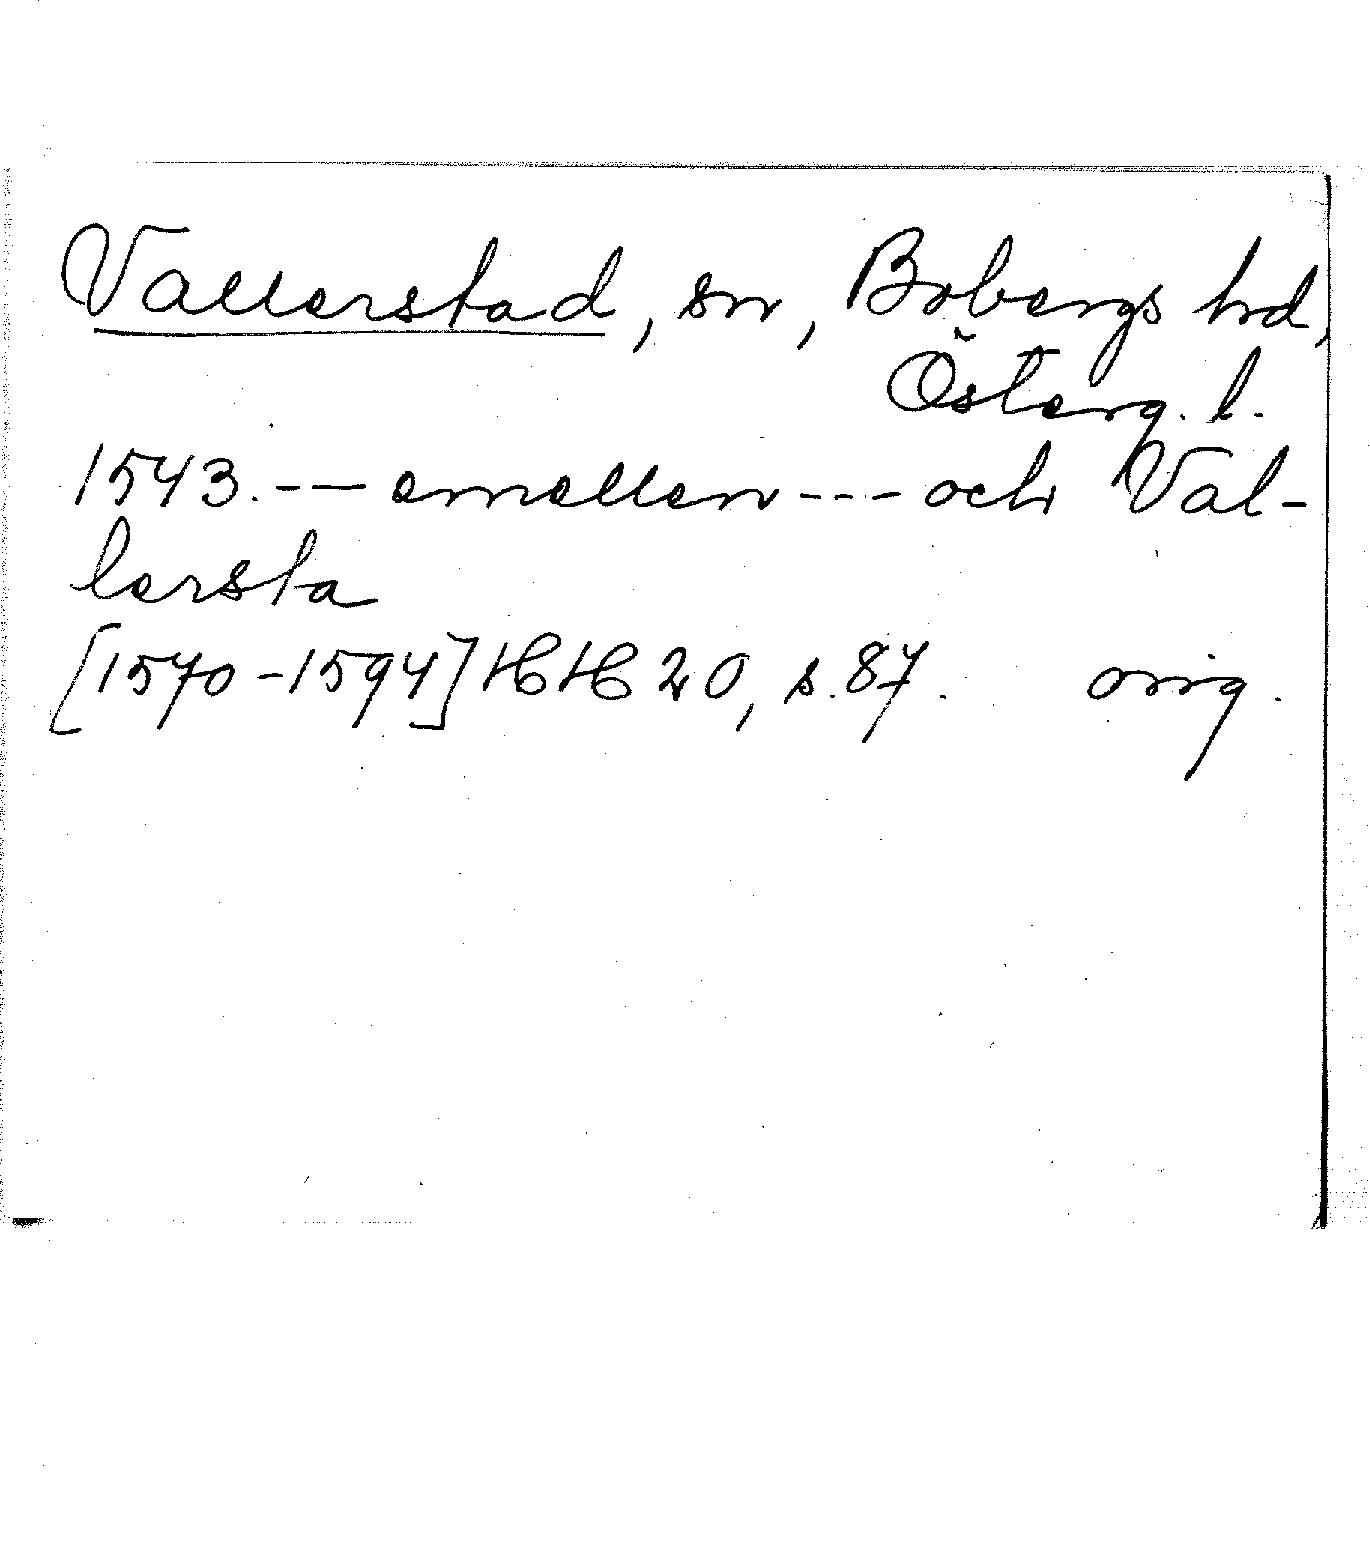 Vallerstad, sn, Bobergs hd,
Österg. l.
1543. --- emellen --- och Val-
lersta
[1570-1594] HH 20, s. 87. orig.